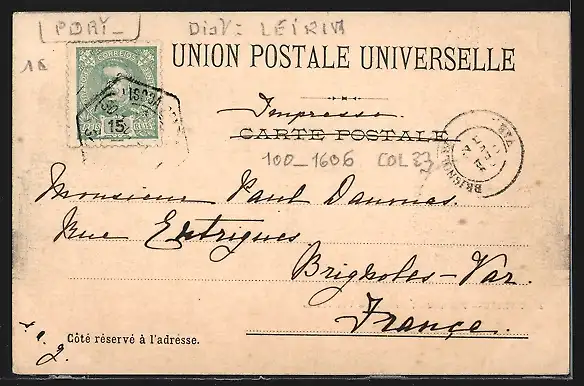 PORT_ Dist: LEIRIA
1€
CORREIOS
15
UNION POSTALE UNIVERSELLE
Impresso
CARTE POSTALE
100_1606 COL
VAR
Monsieur Paul Daumas
Rue Entrigues
Brignoles - Var.
França.
Côté réservé à l'adresse.